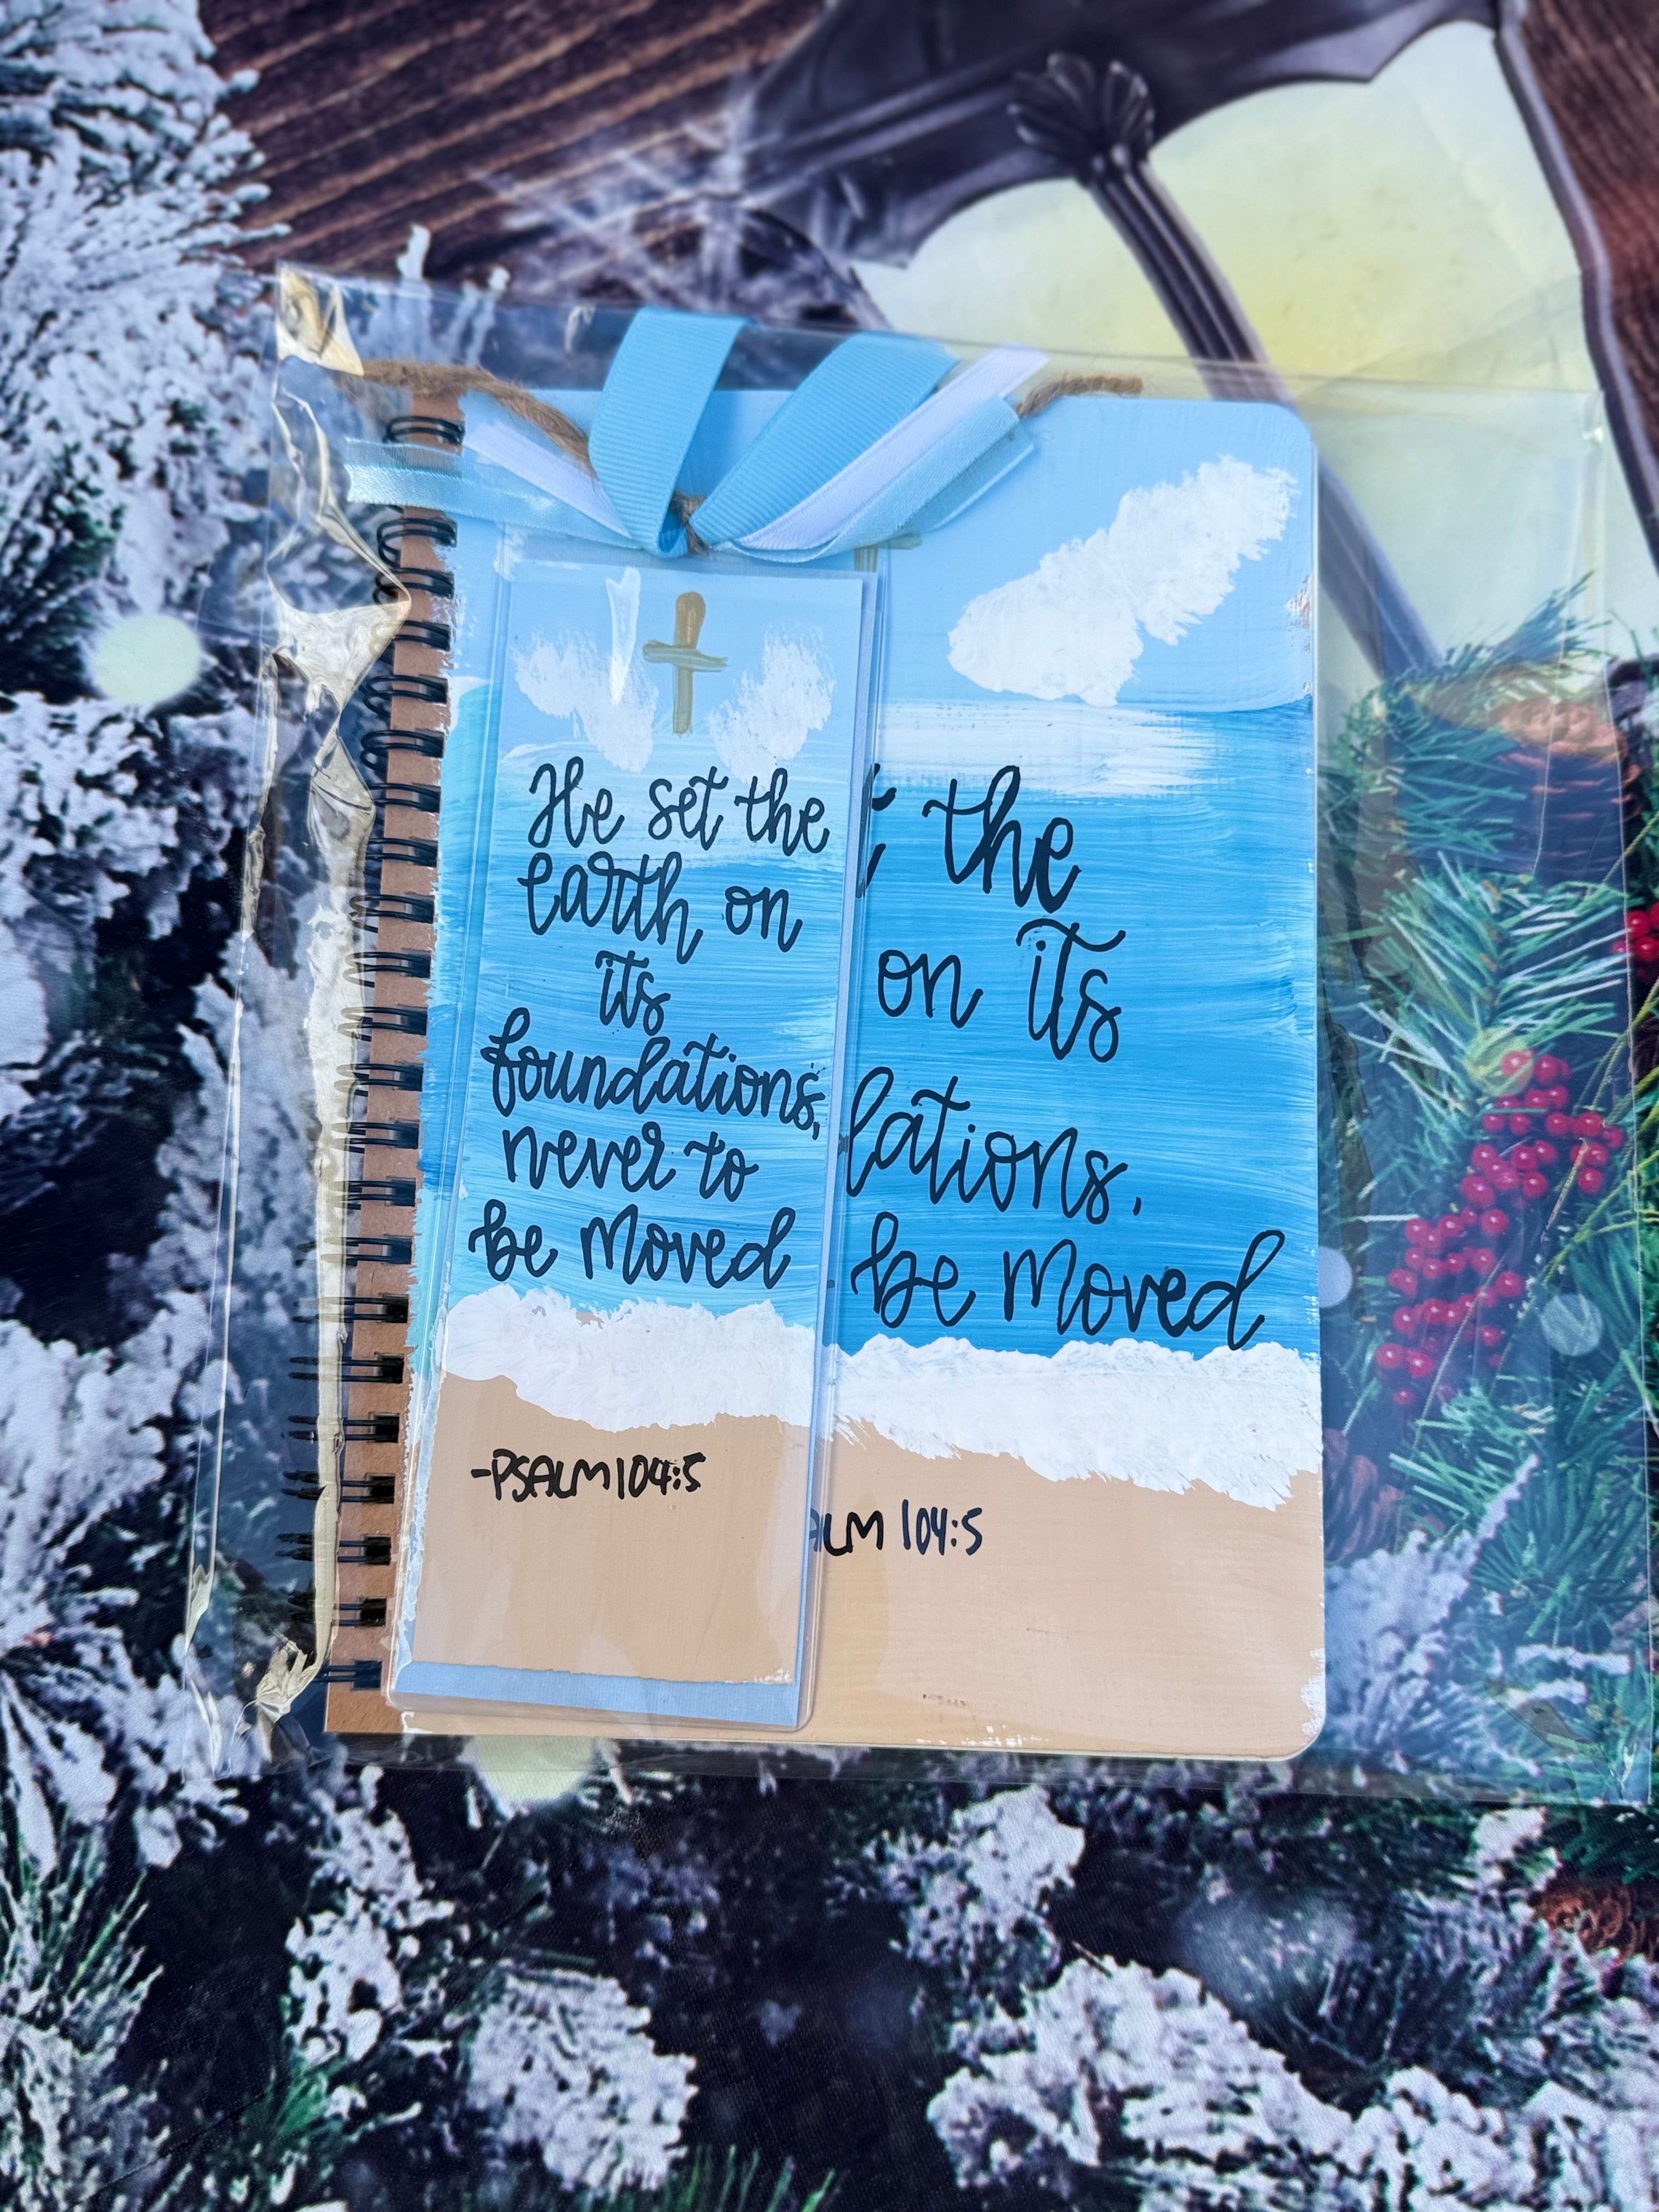 He set the
earth on
its
foundations,
never to
be moved
-PSALM 104:5
the
on its
lations.
be moved
ALM 104:5